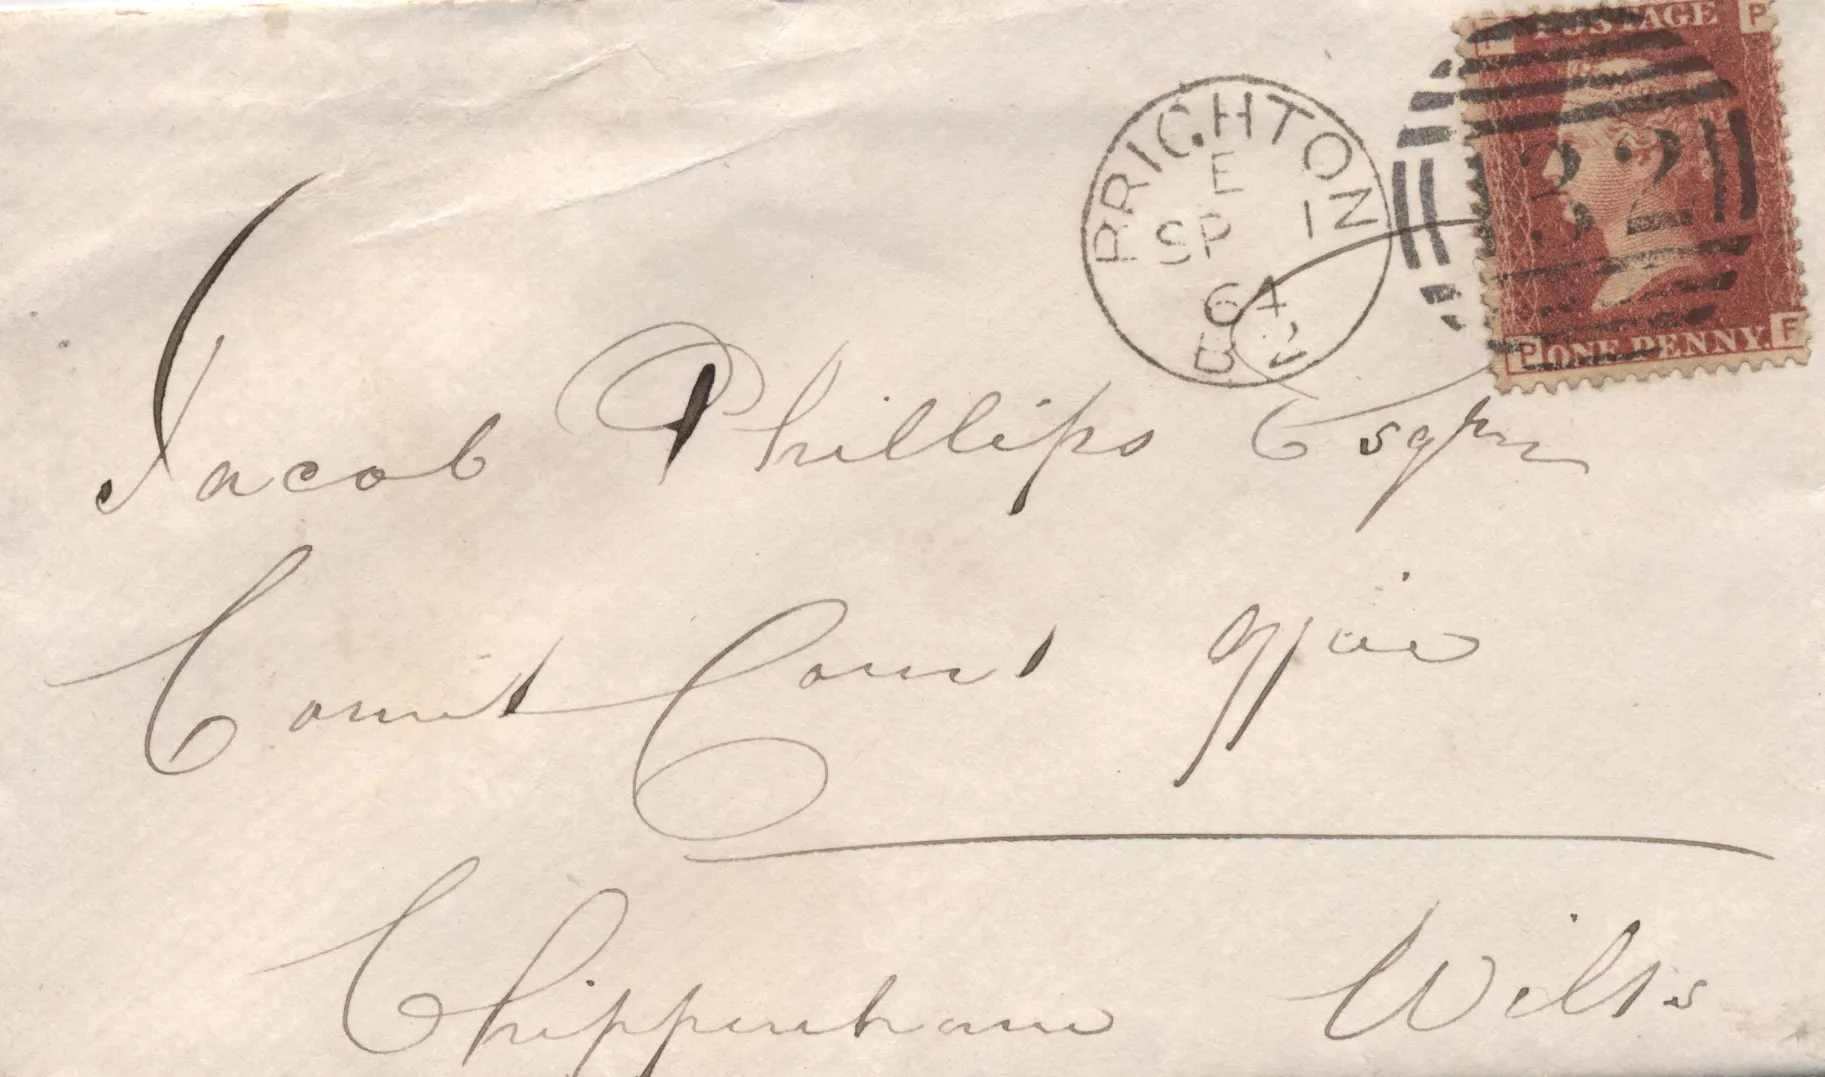 POSTAGE
F P
32
ONE PENNY.
P F
BRIGHTON
E
SP 1
64
B 2
Jacob Phillips Esqre
County Court Office
Chippenham Wilts